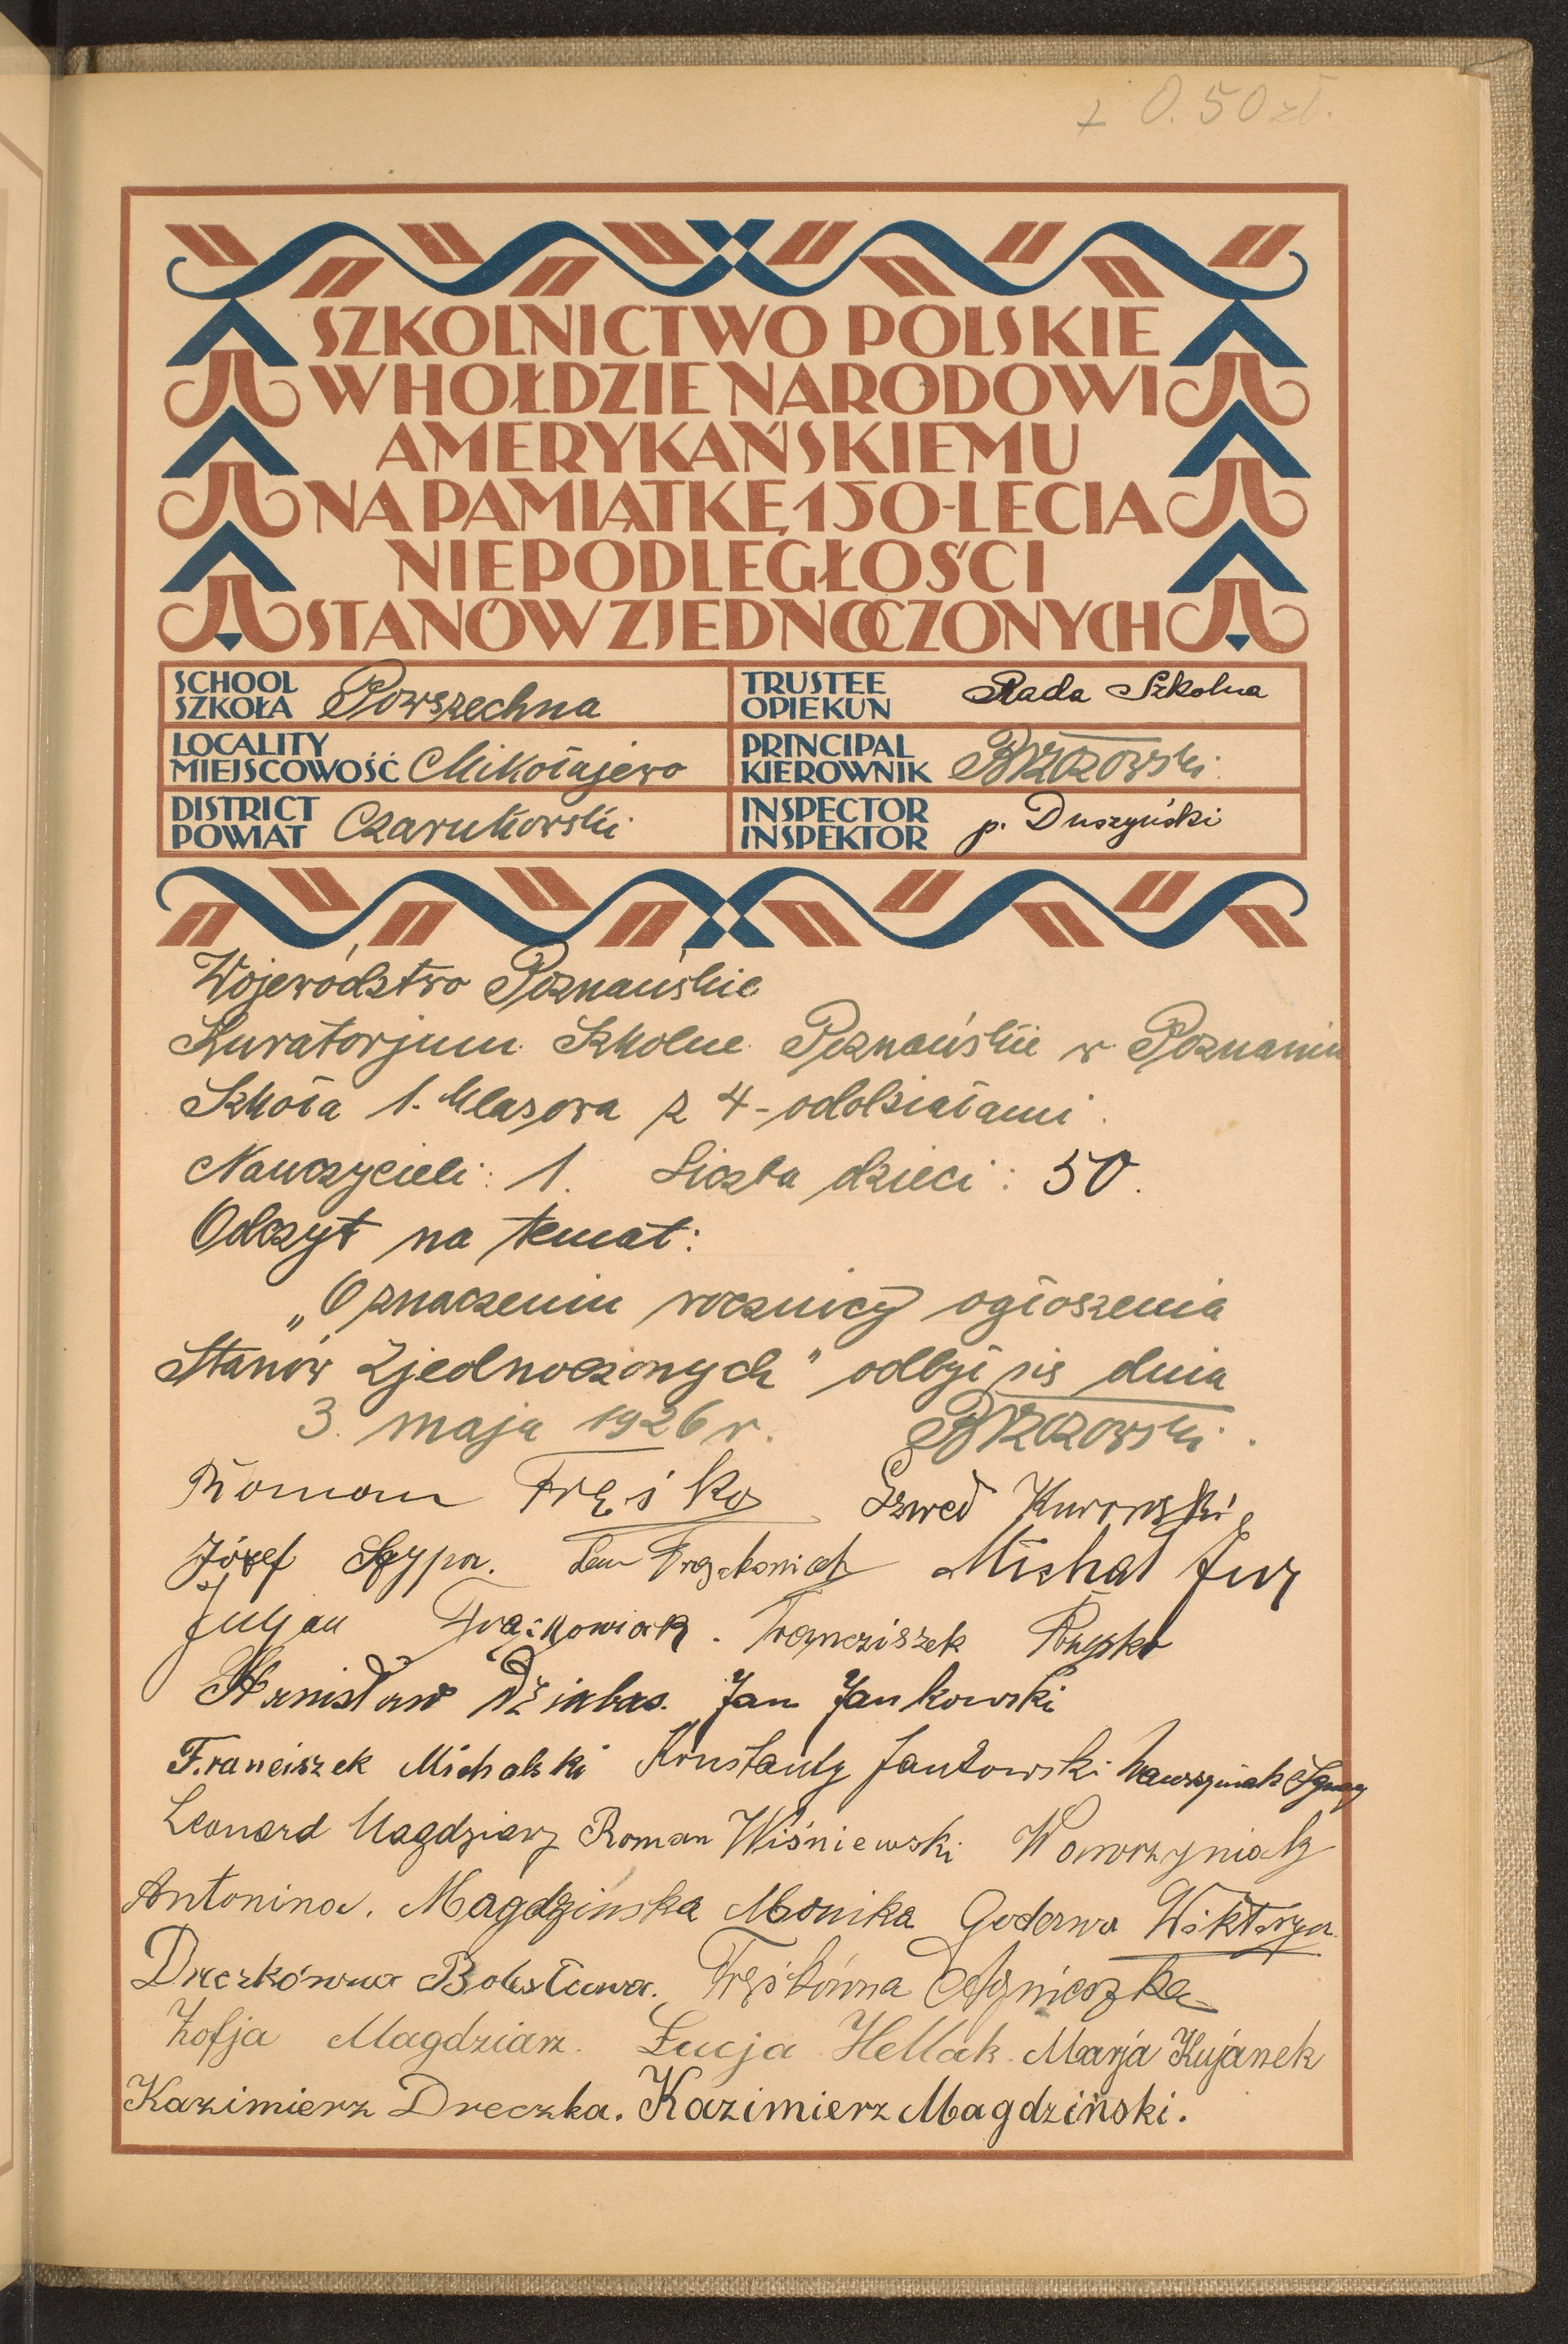 + 0.50 zł.
SZKOLNICTWO POLSKIE
W HOŁDZIE NARODOWI
AMERYKAŃSKIEMU
NA PAMIĄTKĘ 150-LECIA
NIEPODLEGŁOŚCI
STANÓW ZJEDNOCZONYCH
SCHOOL
SZKOŁA Powszechna
TRUSTEE
OPIEKUN Rada Szkolna
LOCALITY
MIEJSCOWOŚĆ Mikołajewo
PRINCIPAL
KIEROWNIK
DISTRICT
POWIAT Czarnkowski
INSPECTOR
INSPEKTOR p. Duszyński
Województwo Poznańskie
Kuratorjum Szkolne Poznańskie w Poznaniu
Szkoła 1. klasowa z 4-oddziałami.
Nauczycieli: 1. Liczba dzieci: 50.
Odczyt na temat:
„O znaczeniu rocznicy ogłoszenia
Stanów Zjednoczonych" odbył się dnia
3. maja 1926 r.
Roman Fręśko
Józef Michał
Juljan Franciszek
Stanisław Jan Jankowski
Franciszek Michalski Jankowski
Leonard Magdziarz Roman Wiśniewski
Antonina. Magdzińska Monika Wiktorya
Dreczkówna Bolesława. Fręśkówna Agnieszka
Zofja Magdziarz. Łucja Hellak. Marja Kujanek
Kazimierz Dreczka. Kazimierz Magdziński.